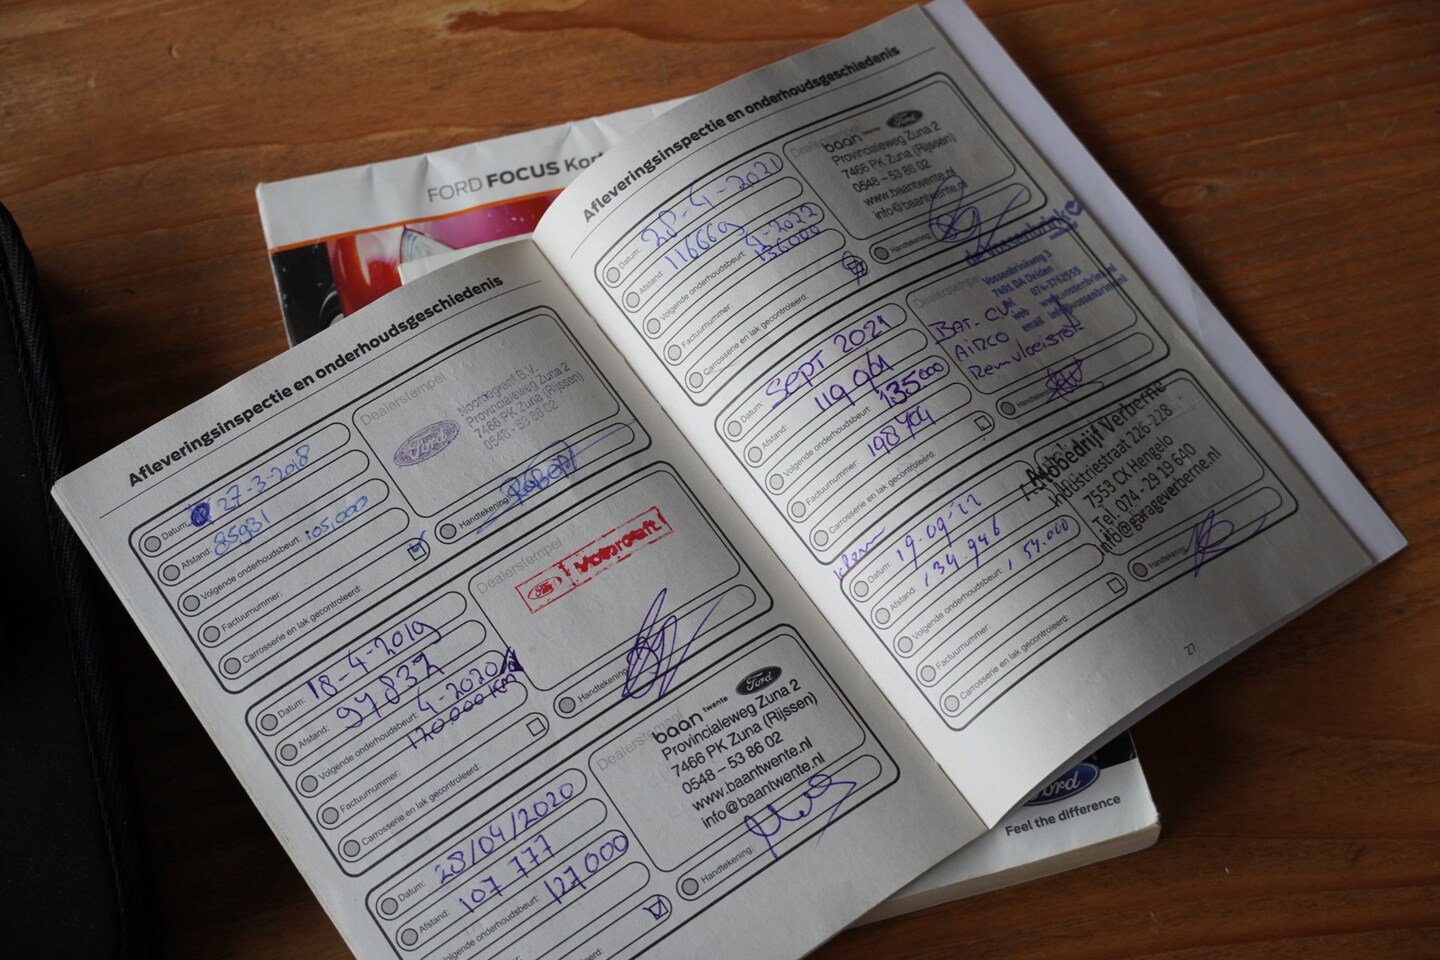 FORD FOCUS Kort
Afleveringsinspectie en onderhoudsgeschiedenis
Datum: 27-3-2018
Afstand: 85931
Volgende onderhoudsbeurt: 105.000
Factuurnummer:
Carrosserie en lak gecontroleerd:
Dealerstempel
Ford
Noordegraaf B.V.
Provincialeweg Zuna 2
7466 PK Zuna (Rijssen)
0548 - 53 86 02
Handtekening:
Datum: 18-4-2019
Afstand: 97832
Volgende onderhoudsbeurt: 4-2020
120.000 KM
Factuurnummer:
Carrosserie en lak gecontroleerd:
Dealerstempel
Motorcraft
Handtekening:
Datum: 28/04/2020
Afstand: 107 777
Volgende onderhoudsbeurt: 127000
Factuurnummer:
Carrosserie en lak gecontroleerd:
Dealerstempel
baan twente Ford
Provincialeweg Zuna 2
7466 PK Zuna (Rijssen)
0548 - 53 86 02
www.baantwente.nl
info@baantwente.nl
Handtekening:
Afleveringsinspectie en onderhoudsgeschiedenis
Datum: 28-4-2021
Afstand: 116669
Volgende onderhoudsbeurt: 4-2022
136000
Factuurnummer:
Carrosserie en lak gecontroleerd:
Dealerstempel
baan twente Ford
Provincialeweg Zuna 2
7466 PK Zuna (Rijssen)
0548 - 53 86 02
www.baantwente.nl
info@baantwente.nl
Handtekening:
Datum: SEPT 2021
Afstand: 119 061
Volgende onderhoudsbeurt: 135000
Factuurnummer: 198704
Carrosserie en lak gecontroleerd:
Dealerstempel
de Vossenbrink
Vossenbrinkweg 3
7491 DA Delden
074-3762555
web www.vossenbrink.nl
email info@vossenbrink.nl
BAT-CVH
AIRCO
Remvloeistof
Handtekening:
Datum: 19-09-22
Afstand: 134.946
Volgende onderhoudsbeurt: 154.000
Factuurnummer:
Carrosserie en lak gecontroleerd:
Autobedrijf Verberne
Industriestraat 226-228
7553 CX Hengelo
Tel. 074 - 29 19 640
info@garageverberne.nl
Handtekening:
27
Ford
Feel the difference